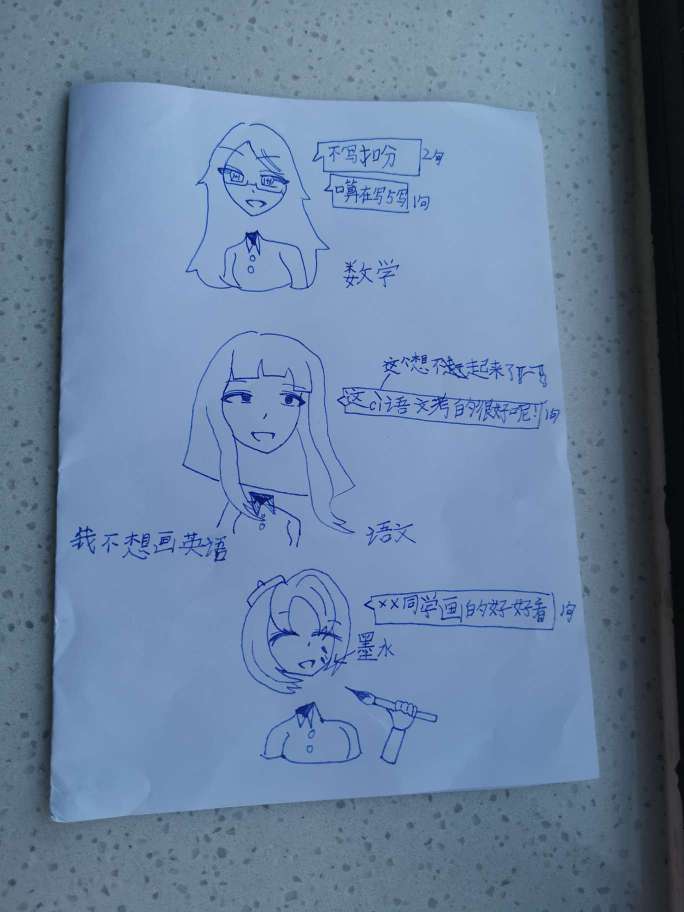 不写扣分
2句
口算在写与写
1句
数学
这个想不起起来了
这ci语文考的很好呢!
1句
我不想画英语
语文
××同学画的好好看
1句
墨水